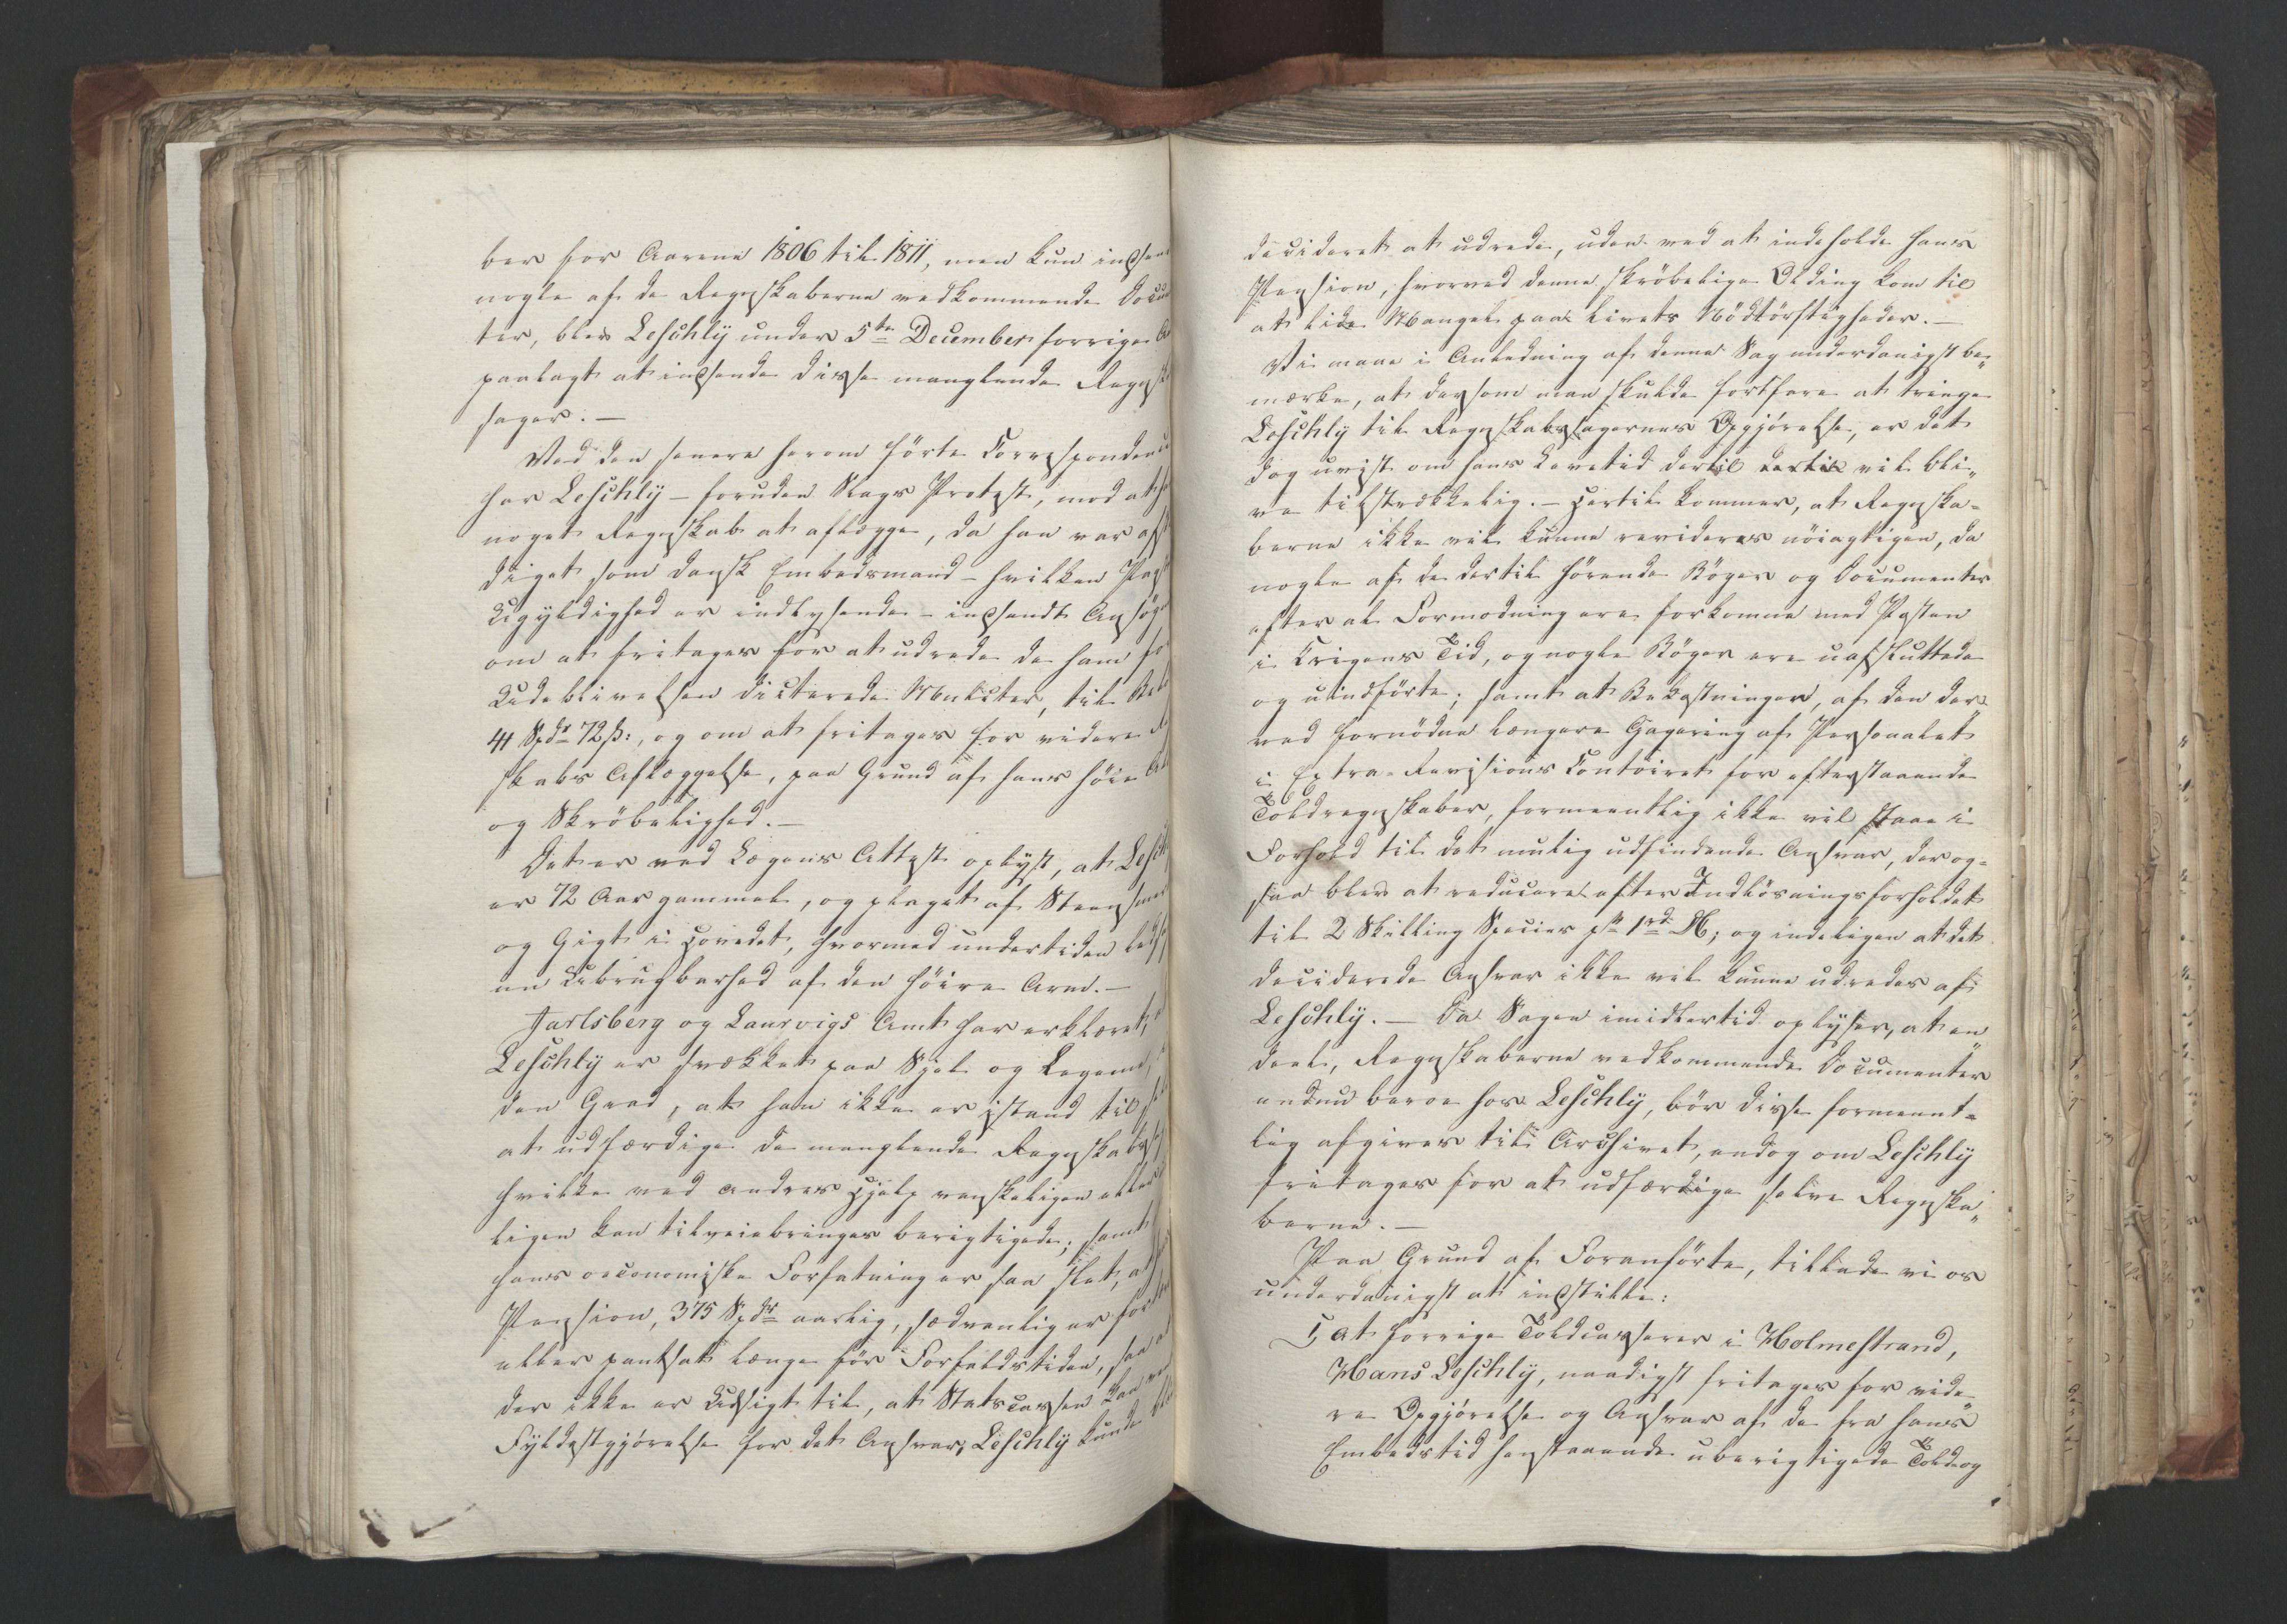 ber for Aarene 1806 til 1811, men kun indsen
nogle af de Regnskaberne vedkommende Docu
ter, blev Leschly under 5te December forrige A
paalagt at indsende disse manglende Regnsk
sager. —
Ved den senere herom førte Correspondence
har Leschly – foruden Slags Protest, mod at h
noget Regnskab at aflægge, da han var afsk
diget som dansk Embedsmand – hvilken Paast
Ugyldighed er indlysende – indsendt Ansøgn
om at fritages for at udrede de ham fo
Udeblivelsen dicterede Mulcter, til Belø
41 Spdr 72 ß:, og om at fritages for videre
skabs Aflæggelse, paa Grund af hans høie Al
og Skrøbelighed. —
Det er ved Lægens Attest oplyst, at Lesch
er 72 Aar gammel, og plaget af Steensmer
og Gigt i Hovedet, hvormed undertiden leds
en Ubrugbarhed af den høire Arm. —
Jarlsberg og Laurvigs Amt har erklæret,
Leschly er svækket paa Sjel og Legeme,
den Grad, at han ikke er istand til
at udfærdige de manglende Regnskabs
hvilke ved andres Hjelp vanskeligen eller
ligen kan tilveiebringes berigtigede; samt
hans oeconomiske Forfatning er saa slet, at
Pension, 375 Spdr aarlig, sædvanlig er for
eller pantsat længe før Forfaldstiden, saa
der ikke er Udsigt til, at Statscassen kan
Fyldestgjørelse for det Ansvar, Leschly kunde
decideret at udrede, uden ved at indeholde hans
Pension, hvorved denne skrøbelige Olding kom til
at lide Mangel paa Livets Nødtørftigheder. —
Vi maae i Anledning af denne Sag underdanigst be„
mærke, at dersom man skulde fortfare at tvinge
Leschly til Regnskabssagernes Opgjørelse, er det
dog uvist om hans Levetid dertil dertil vil bli„
ve tilstrækkelig. – Hertil kommer, at Regnska=
berne ikke vil kunne revideres nøiagtigen, da
nogle af de dertil hørende Bøger og Documenter
efter al Formodning ere forkomne med Posten
i Krigens Tid, og nogle Bøger ere uafsluttede
og uindførte; samt at Bekostningen, af den der„
ved fornødne længere Gagering af Personalet
i Extra-Revisions Contoiret for efterstaaende
Toldregnskaber, formeentlig ikke vil staae i
Forhold til det mulig udfindende Ansvar, der og=
saa blev at reducere efter Indløsningsforholdet
til 2 Skilling Species pr 1 rd. NV; og endeligen at det
deciderede Ansvar ikke vil kunne udredes af
Leschly. — Da Sagen imidlertid oplyser, at en
deel, Regnskaberne vedkommende Documenter
endnu beroe hos Leschly, bør disse formeent=
lig afgives til Archivet, endog om Leschly
fritages for at udfærdige selve Regnska„
berne. —
Paa Grund af Foranførte, tillade vi os
underdanigst at indstille:
at forrige Toldcasserer i Holmestrand,
Hans Leschly, naadigst fritages for vide„
re Opgjørelse og Ansvar af de fra hans
Embedstid henstaaende uberigtigede Told og